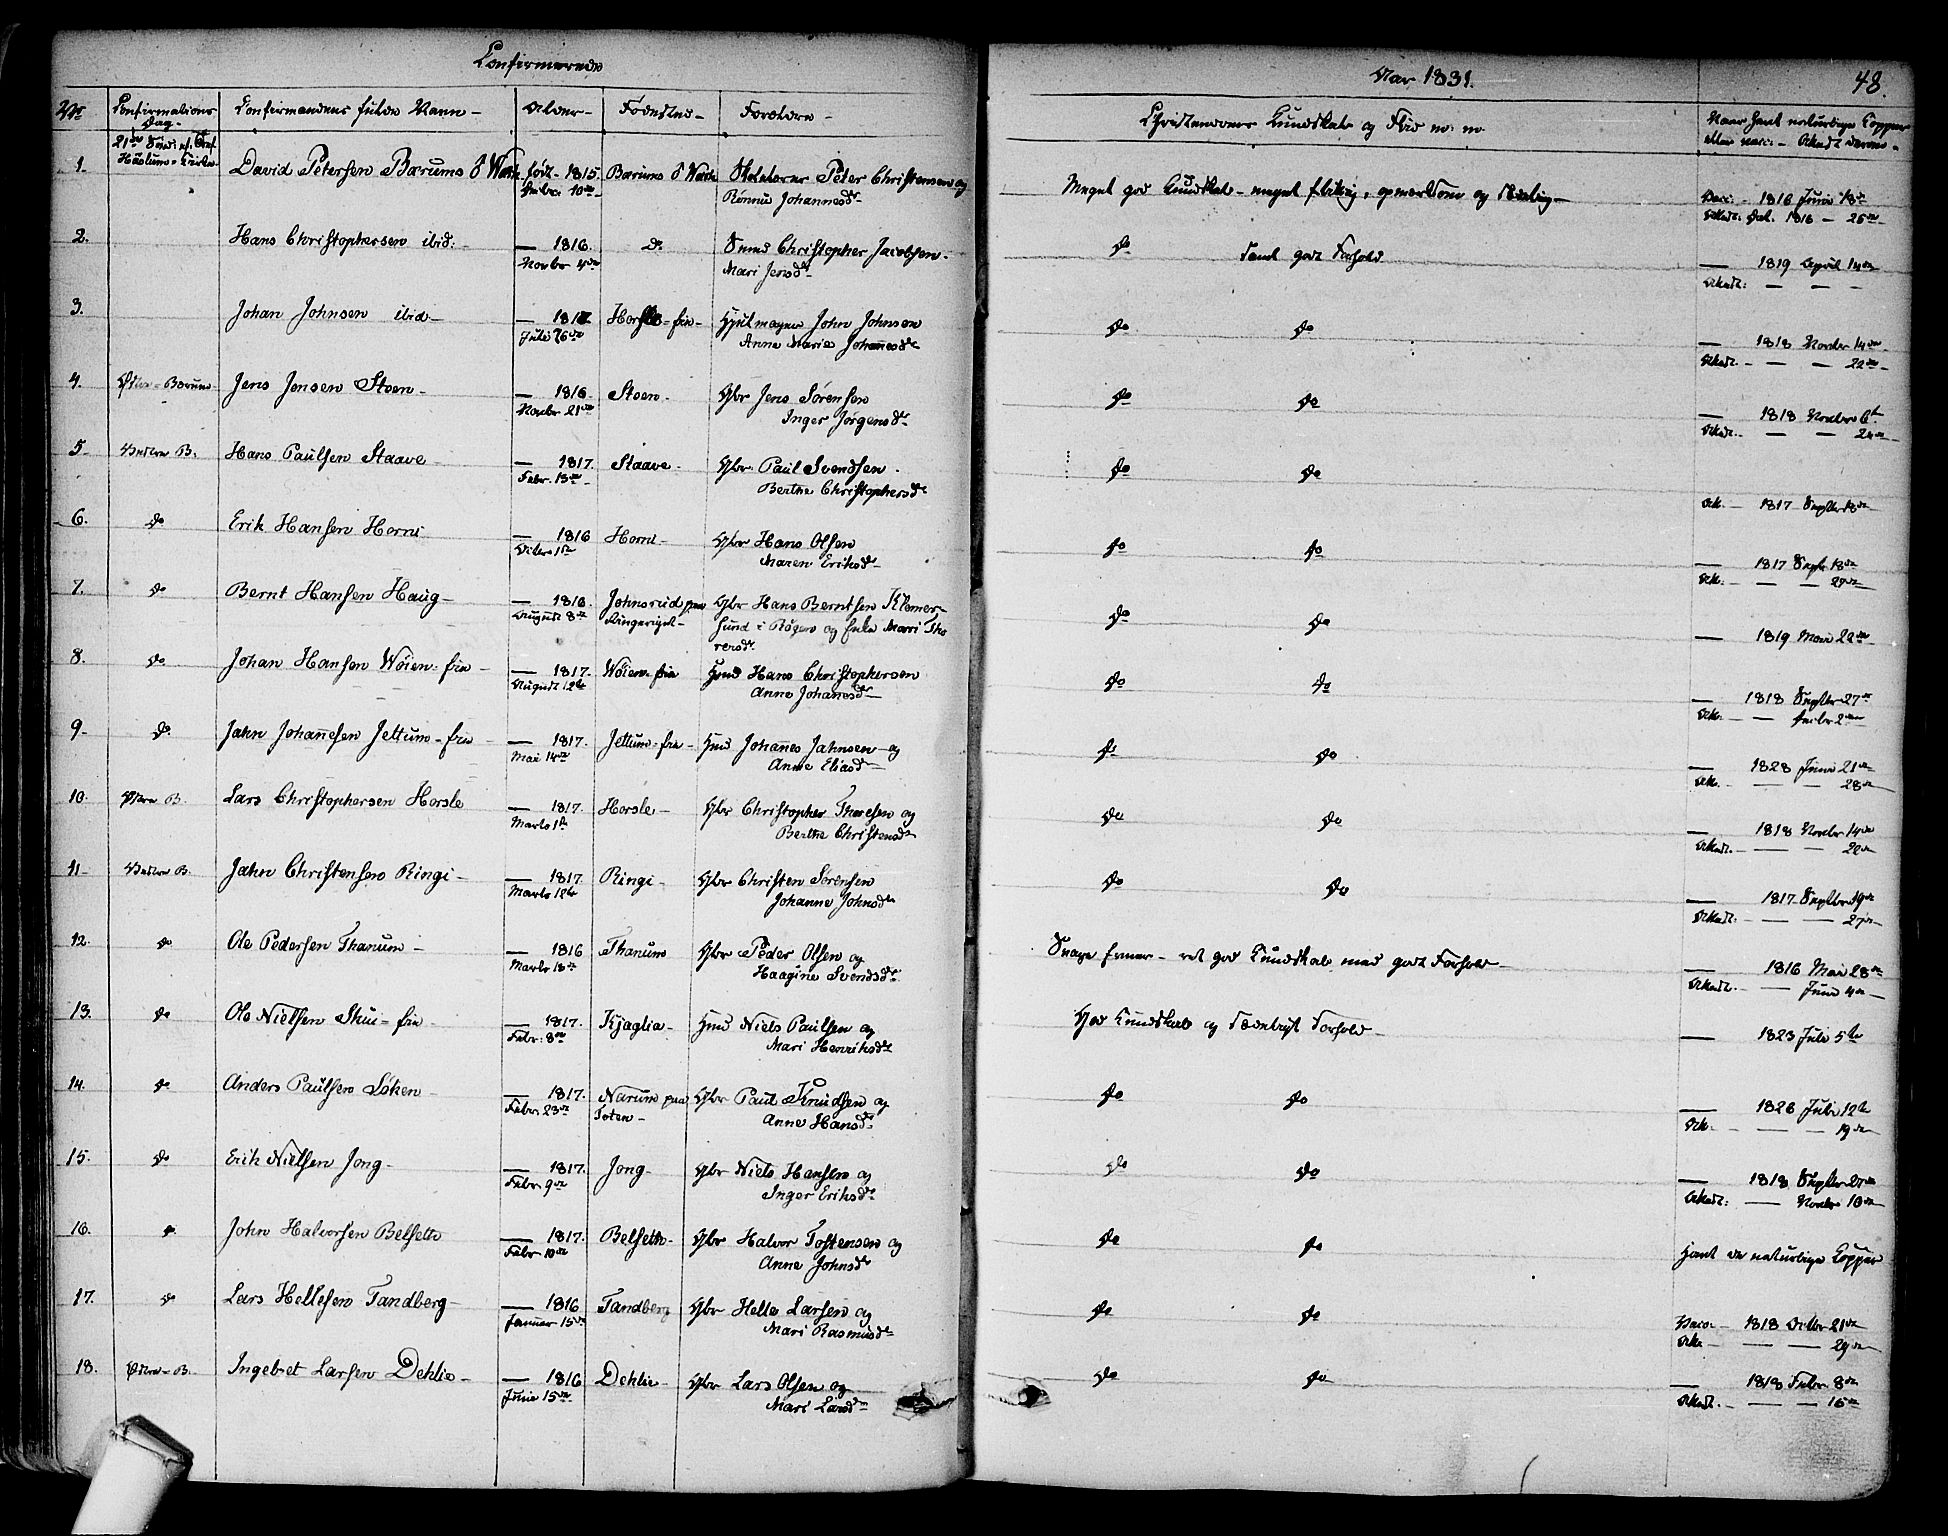 Confirmerede
Aar 1831.
48.
No
Confirmations Dag
Confirmandens fulde Navn
Alder
Fødested
Forældre
Christendoms Kundskab og Flid m: m:
Naar havt naturlige Kopper
eller vacc:
21de Sønd: ef: Tref
Haslums Kirke
1. David Petersen Bærums Værk født 1815. 10de Bærums Værk Peter Christensen og
Rønnie Johannesdr
Meget god Kundskab - meget flittig, opmærksom og sædelig
Vacc: 1816 Juni 18de
Attest: Dat. 1816 - 25de
2. Hans Christophersen ibid: 1816. do Smed Christopher Jacobsen
Novbr 4de Mari Jensdr
do samt godt Forhold
1819 April 14de
Attest:
3. Johan Johnsen ibid Horsle-eie Hjulmager John Johnsen
Juli 26de Anne Marie Johannesdr
do do
1818 Novbr 14de
Attest: 22de
4. Østre Bærum Jens Jensen Stoen 1816 Stoen Gbr Jens Sørensen
Novbr 21de Inger Jørgensdr
do do
1818 Novbr 6te
Attest: 24de
5. Vestre B. Hans Paulsen Staave 1817. Staave Gbr. Paul Svendsen
Febr. 13de Berthe Christophersdr
do do
Att. 1817 Septbr 18de
6. do Erik Hansen Horni 1816 Horni Gbr Hans Olsen
Octbr 1ste Maren Eriksdr
do do
1817 Septbr 18de
Att: 27de
7. do Bernt Hansen Haug 1816. Johnsrud paa Gbr Hans Berntsen Klemer-
August 8de Ringeriget sund i Røgen og Enke Marri Tho
resdr
do do
1819 Mai 22de
8. do Johan Hansen Wøien-eie 1817. Wøien-eie Hmd Hans Christophersen
August 12te Anne Johanesdr
do do
1818 Septbr 27de
Att:
9. do Jahn Johanesen Jettum-eie 1817. Jettum-eie Hmd Johanes Jahnsen og
Mai 14de Anne Eliasdr
do do
1828 Juni 21de
Att. 28de
10. Østre B. Lars Christophersen Horsle 1817. Horsle Gbr Christopher Thoresen og
Marts 1ste Berthe Christensdr
do do
1818 Novbr 14de
Attest. 22de
11. Vestre B. Jahn Christensen Ringi 1817. Ringi Gbr Christen Sørensen
Marts 12te Johanne Johnsdr
do do
1817 Septbr 19de
Attest: 27de
12. do Ole Pedersen Thanum 1816 Thanum Gbr Peder Olsen og
Marts 18de Haagine Svendsdr
Svage Evner - ret god Kundskab med godt Forhold
1816 Mai 28de
Attest. Juni 4de
13. do Ole Nielsen Skui-eie 1817. Kjaglia Hmd Niels Paulsen og
Febr: 8de Mari Henriksdr
God Kundskab og sædeligt Forhold
1823 Juli 5te
14. do Anders Paulsen Løken 1817. Narum paa Gbr Paul Knudsen og
Febr. 23de Toten Anne Hansdr
do do
1826 Juli 12te
Att. 19de
15. do Erik Nielsen Jong 1817. Jong Gbr Niels Hansen og
Febr 9de Inger Eriksdr
do do
1818 Septbr 27de
Attest: Novbr 10de
16. do John Halvorsen Belset 1817. Belset Gbr Halvor Tostensen og
Febr 10de Anne Johnsdr
do do
Havt de naturlige Kopper
17. do Lars Hellesen Tandberg 1816 Tandberg Gbr Helle Larsen og
Januar 15de Mari Rasmusdr
do do
Vacc. 1818 Octbr 21de
Att. 29de
18. Østre B. Ingebret Larsen Dehlie 1816 Dehlie Gbr Lars Olsen og
Juni 15de Mari Larsdr
do do
1818 Febr 8de
Attest. 15de